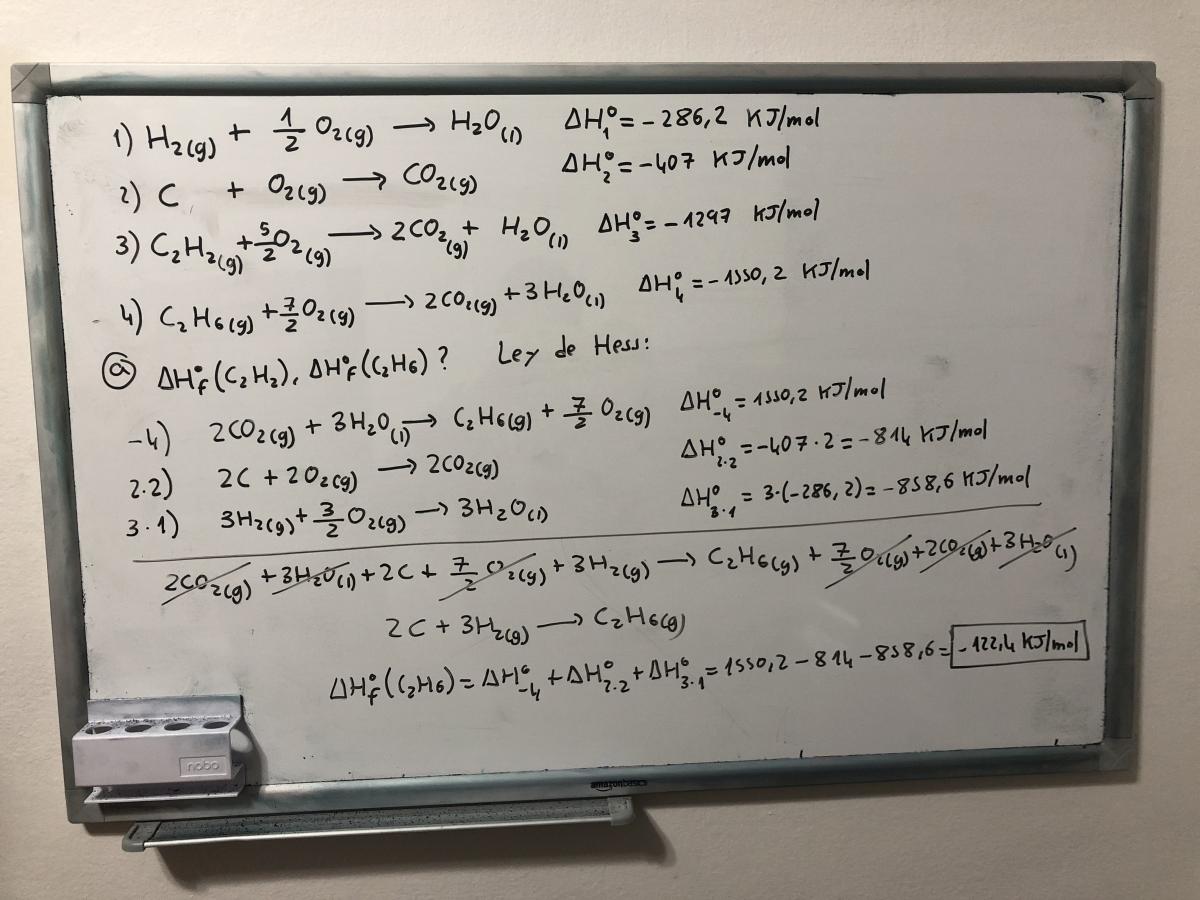 1) H₂(g) + 1/2 O₂(g) → H₂O(l) ΔH₁° = -286,2 KJ/mol
2) C + O₂(g) → CO₂(g) ΔH₂° = -407 KJ/mol
3) C₂H₂(g) + 5/2 O₂(g) → 2CO₂(g) + H₂O(l) ΔH₃° = -1297 KJ/mol
4) C₂H₆(g) + 7/2 O₂(g) → 2CO₂(g) + 3H₂O(l) ΔH₄° = -1550,2 KJ/mol
ⓐ ΔH°f(C₂H₂), ΔH°f(C₂H₆)? Ley de Hess:
-4) 2CO₂(g) + 3H₂O(l) → C₂H₆(g) + 7/2 O₂(g) ΔH°₋₄ = 1550,2 KJ/mol
2·2) 2C + 2O₂(g) → 2CO₂(g) ΔH°₂.₂ = -407·2 = -814 KJ/mol
3·1) 3H₂(g) + 3/2 O₂(g) → 3H₂O(l) ΔH°₃.₁ = 3·(-286,2) = -858,6 KJ/mol
2CO₂(g) + 3H₂O(l) + 2C + 7/2 O₂(g) + 3H₂(g) → C₂H₆(g) + 7/2 O₂(g) + 2CO₂(g) + 3H₂O(l)
2C + 3H₂(g) → C₂H₆(g)
ΔH°f(C₂H₆) = ΔH°₋₄ + ΔH°₂.₂ + ΔH°₃.₁ = 1550,2 - 814 - 858,6 = -122,4 KJ/mol
nobo
amazonbasics